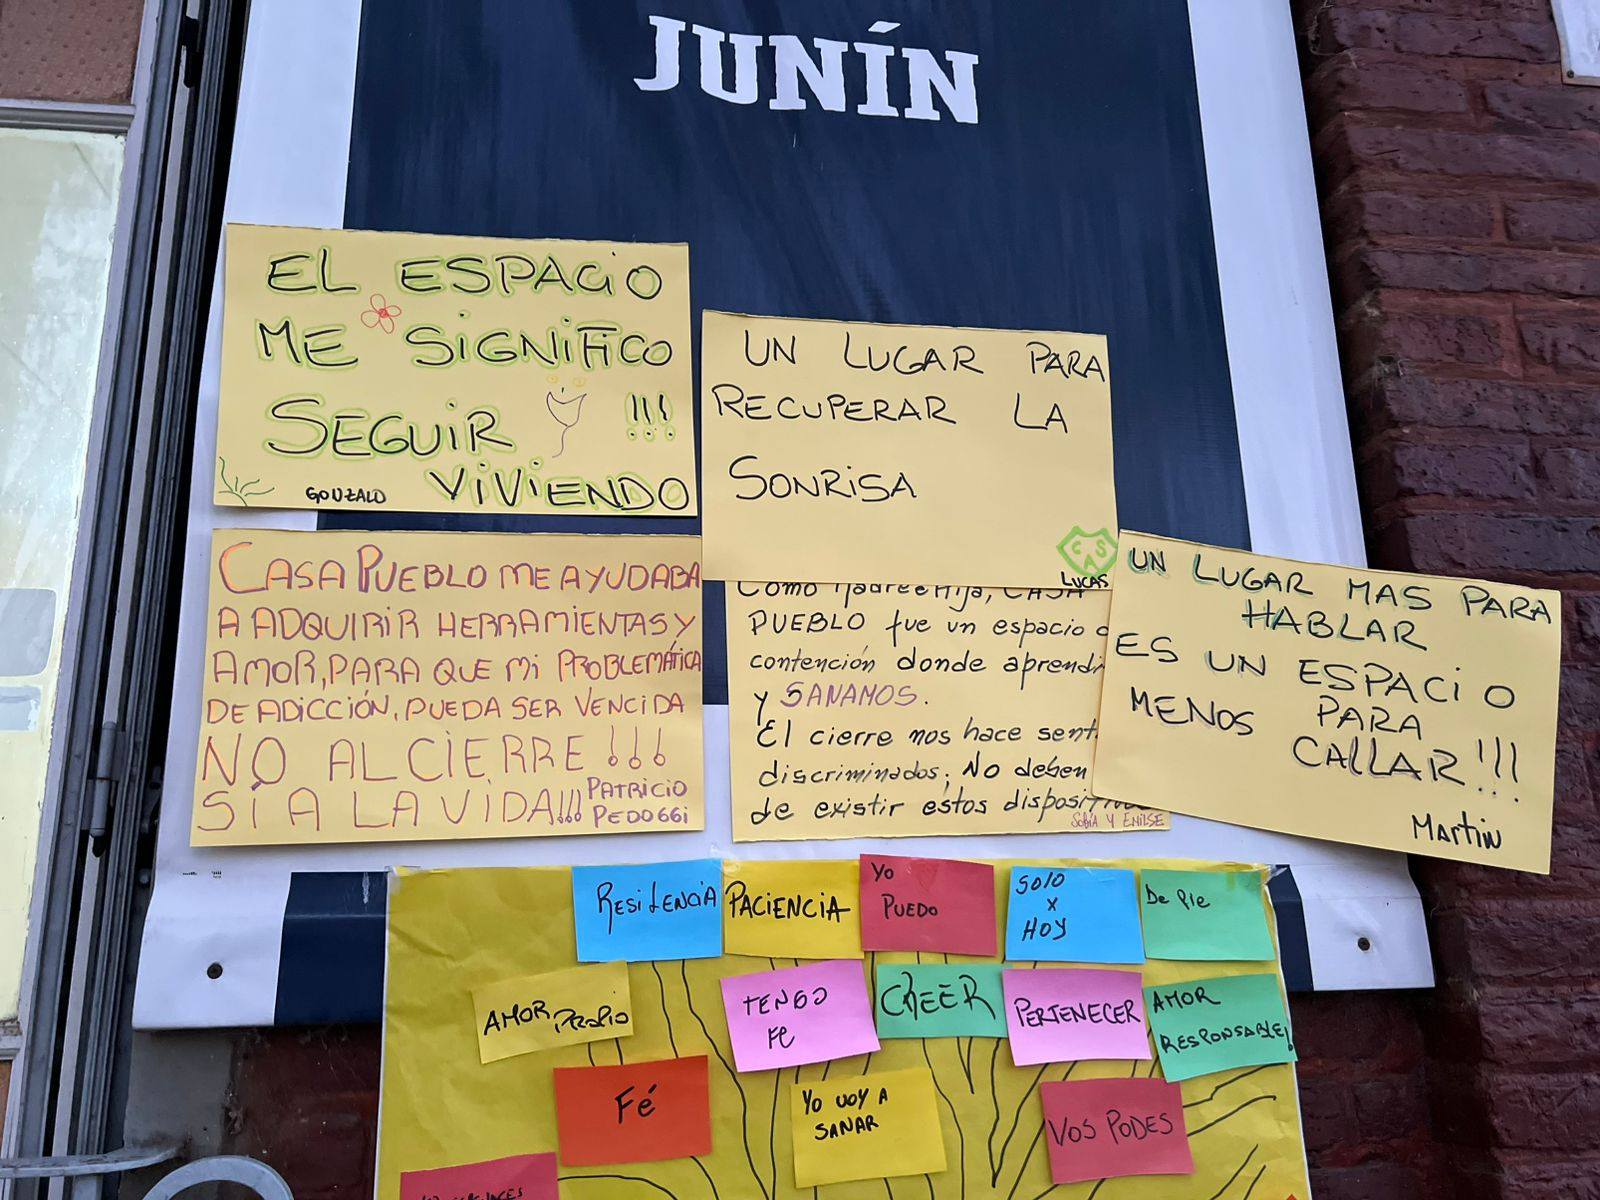 JUNÍN
EL ESPACiO
ME SiGNiFiCO
SEGUiR !!!
ViViENDO
GONZALO
UN LUGAR PARA
RECUPERAR LA
SONRiSA
CAS
LUCAS
CASA PUEBLO ME AYUDABA
A ADQUIRIR HERRAMIENTAS Y
AMOR, PARA QUE Mi PROBLEMÁTICA
DE ADICCIÓN, PUEDA SER VENCIDA
NO AL CIERRE!!!
SÍ A LA VIDA!!!
PATRICIO
PEDOGGi
Como Madre e Hija, CASA
PUEBLO fue un espacio
contención donde
y SANAMOS.
El cierre nos hace
discriminados; No deben
de existir estos
SOFÍA Y ENILSE
UN LUGAR MAS PARA
HABLAR
ES UN ESPACiO
MENOS PARA
CALLAR!!!
Martin
RESiLENCiA
PACIENCIA
Yo
PUEDO
SOLO
X
HOY
De Pie
AMOR PROPIO
TENGO
FE
CREER
PERTENECER
AMOR
RESPONSABLE!
Fé
Yo VOY A
SANAR
VOS PODES